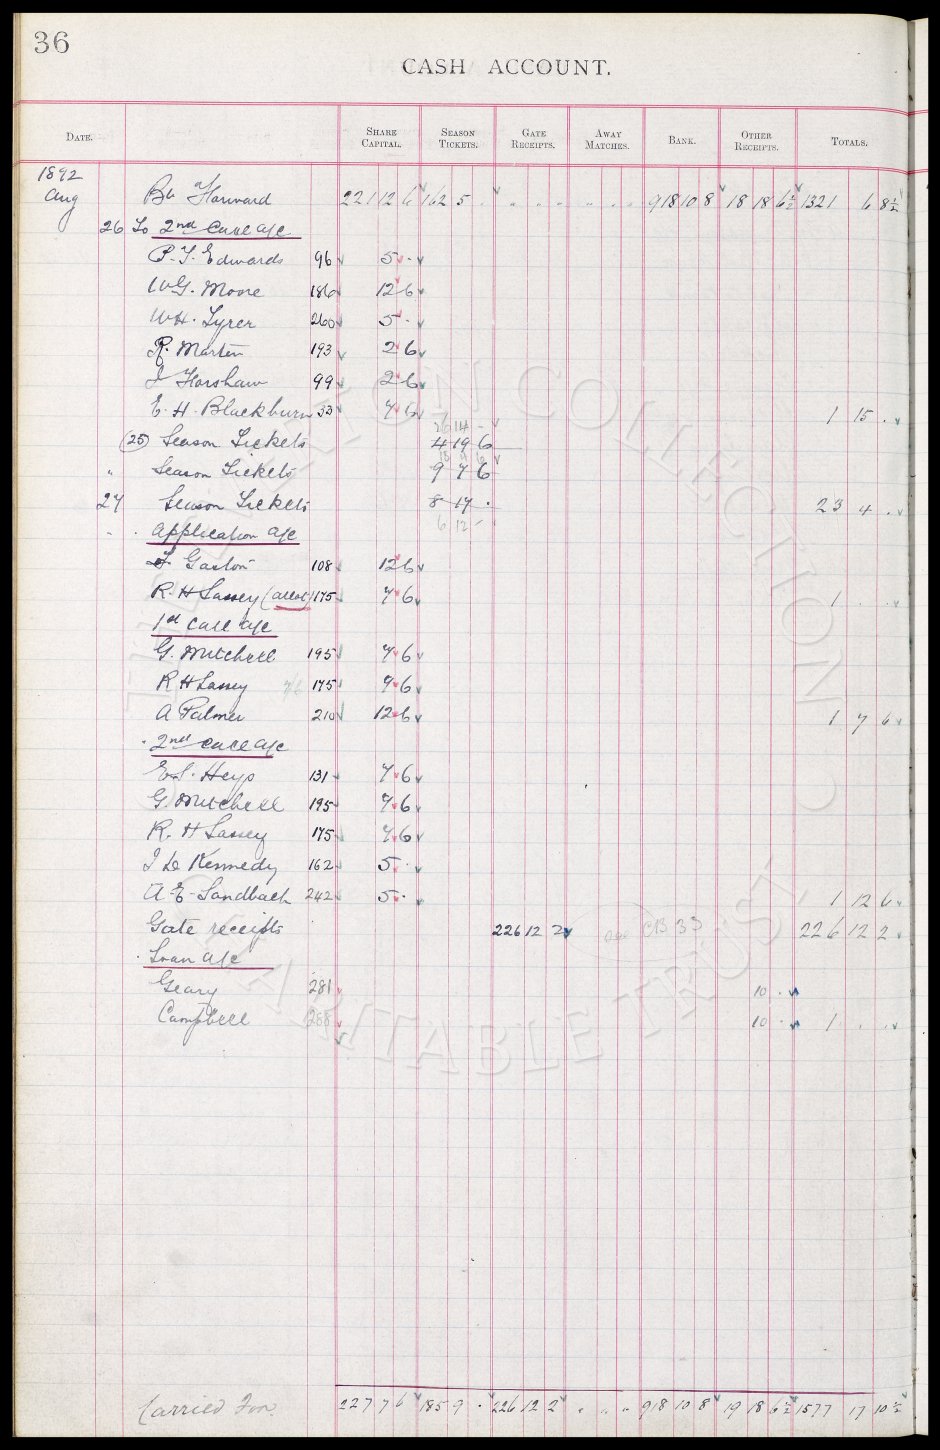 36
CASH ACCOUNT.
DATE. SHARE CAPITAL. SEASON TICKETS. GATE RECEIPTS. AWAY MATCHES. BANK. OTHER RECEIPTS. TOTALS.
1892
Aug Bt Forward 221 12 6 162 5 . " " " " . . 918 10 8 18 18 6½ 1321 6 8½
26 To 2nd Call a/c
P. J. Edwards 96 5 .
W G. Moore 186 12 6
W H. Tyrer 260 5 .
R. Martin 193 2 6
J Forshaw 99 2 6
E. H. Blackburn 33 7 6 1 15 .
26 14 -
(25) Season Tickets 4 19 6
18 4 6
" Season Tickets 9 7 6
27 Season Tickets 8 17 . 23 4 .
6 12 -
" Application a/c
J. Gaston 108 12 6
R. H Sassey (allot) 175 7 6 1 . .
1st Call a/c
G. Mitchell 195 7 6
R H Sassey 7/6 175 7 6
A Palmer 210 12 6 1 7 6
2nd Call a/c
E S. Heyo 131 7 6
G. Mitchell 195 7 6
R. H Sassey 175 7 6
J De Kennedy 162 5 .
A E Sandbach 242 5 . 1 12 6
Gate receipts 226 12 2 see CB 33 226 12 2
Loan a/c
Geary 281 10 .
Campbell 288 10 . 1 . .
EVERTON COLLECTION
CHARITABLE TRUST
Carried For. 227 7 6 185 9 . 226 12 2 " " " 918 10 8 19 18 6½ 1577 17 10½